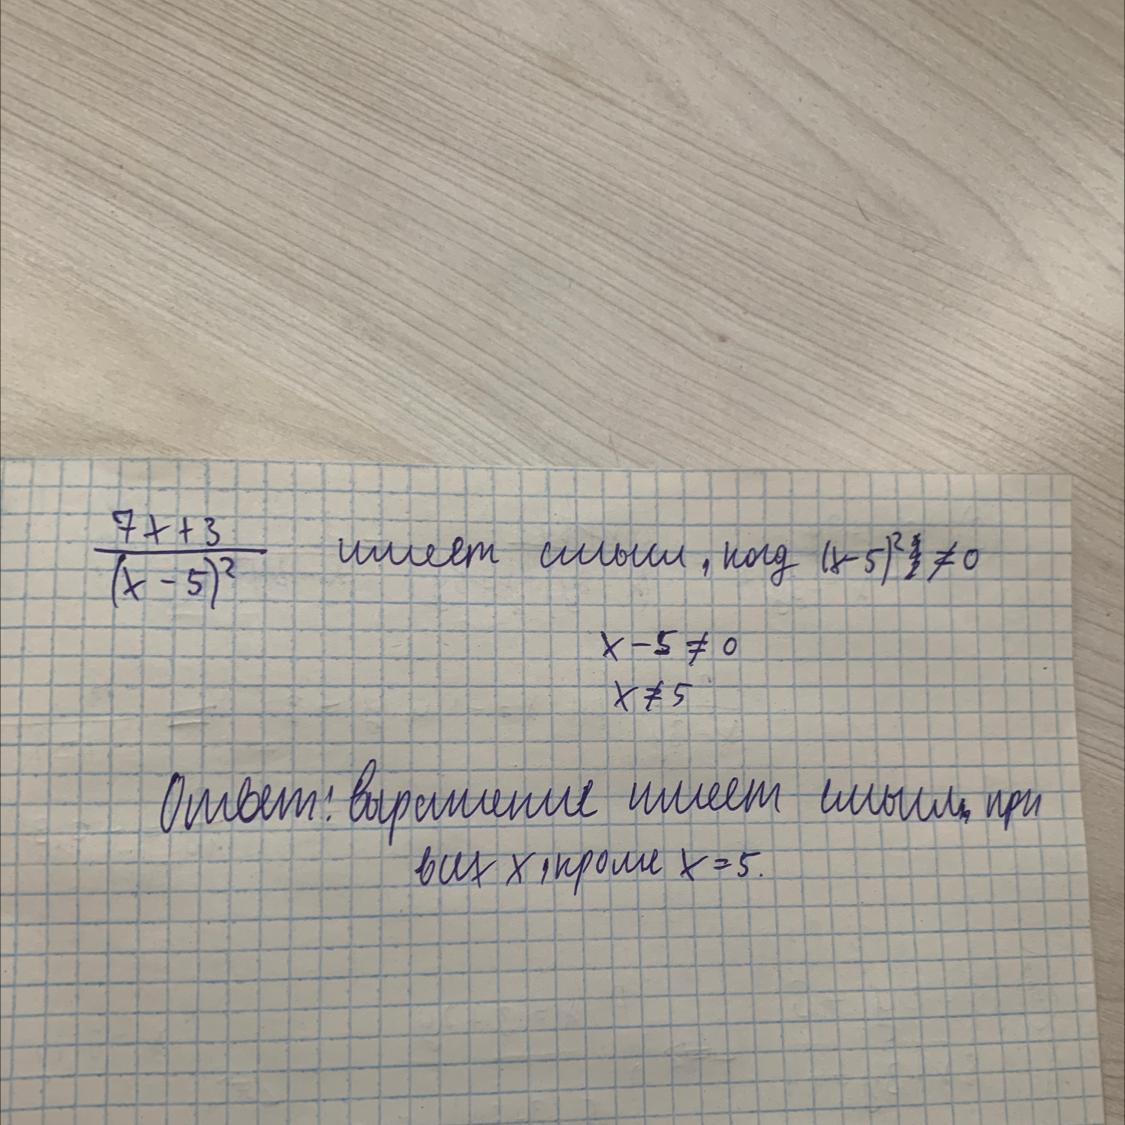 7x+3
(x-5)² имеет смысл, когд (x-5)² ≠0
x-5≠0
x≠5
Ответ: выражение имеет смысл, при
всех x, кроме x=5.